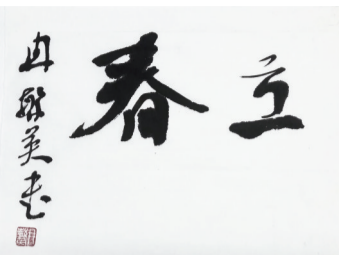 立春
冉繁英书